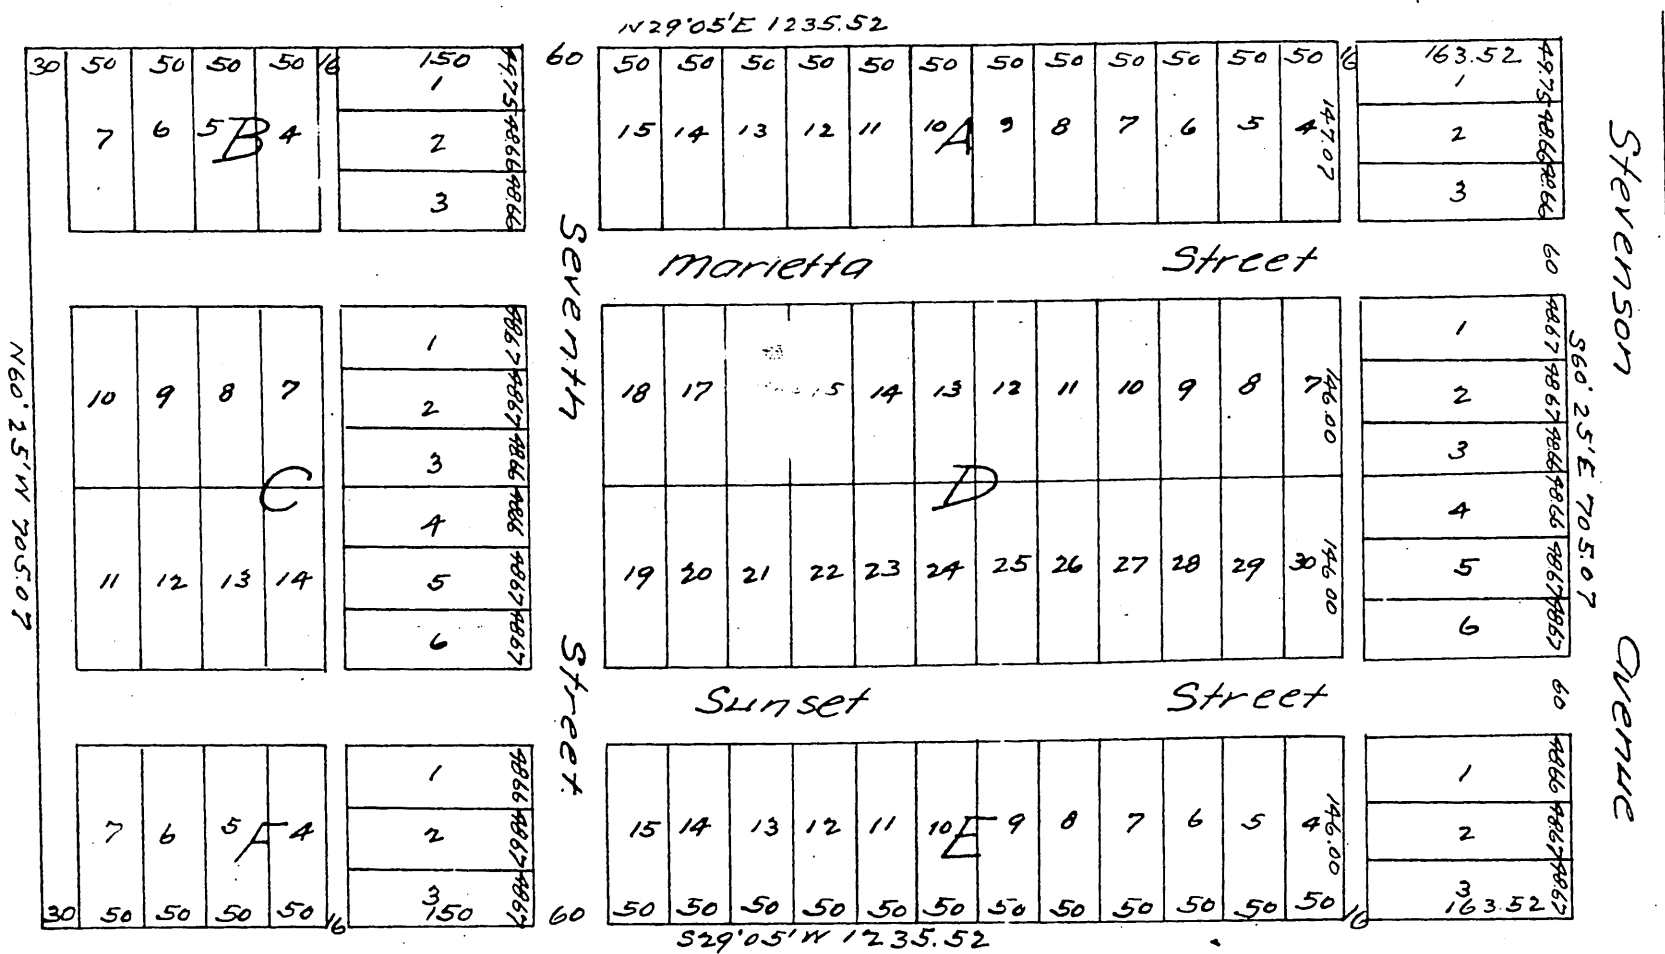 N29°05'E 1235.52
30 50 50 50 50 16 150 60 50 50 50 50 50 50 50 50 50 50 50 50 16 163.52
7 6 5 B 4
1 49.75
2 48.66
3 48.66
15 14 13 12 11 10 A 9 8 7 6 5 4 147.07
1 49.75
2 48.66
3 48.66
Marietta Street 60
Seventh Street
Stevenson Avenue
N60°25'W 705.07
S60°25'E 705.07
10 9 8 7
C
11 12 13 14
1 48.67
2 48.67
3 48.66
4 48.66
5 48.67
6 48.67
18 17 15 14 13 12 11 10 9 8 7 146.00
D
19 20 21 22 23 24 25 26 27 28 29 30 146.00
1 48.67
2 48.67
3 48.66
4 48.66
5 48.67
6 48.67
Sunset Street 60
7 6 5 F 4
1 48.66
2 48.67
3 48.67
15 14 13 12 11 10 E 9 8 7 6 5 4 146.00
1 48.66
2 48.67
3 48.67
30 50 50 50 50 16 150 60 50 50 50 50 50 50 50 50 50 50 50 50 16 163.52
S29°05'W 1235.52